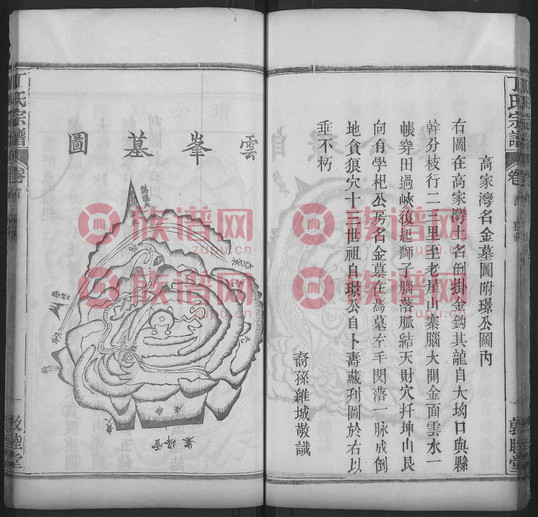 丁氏宗譜
高家灣名金墓圖附璟公圖內
右圖在高家灣土名倒掛金鈎其龍自大㘭口與縣
幹分枝行二里至老屋山寨腦大開金面雲水一
帳穿田過峽復起獅腦落脈結天財穴扦坤山艮
向有學杞公房名金墓在焉墓左手閃落一脈成倒
地貪狼穴十三世祖自璟公自卜壽藏刊圖於右以
垂不朽
裔孫維城敬識
敦睦堂
雲峯墓圖
丁氏宗譜
敦睦堂
族谱网
zupu.cn
族谱网
zupu.cn
族谱网
zupu.cn
族谱网
zupu.cn